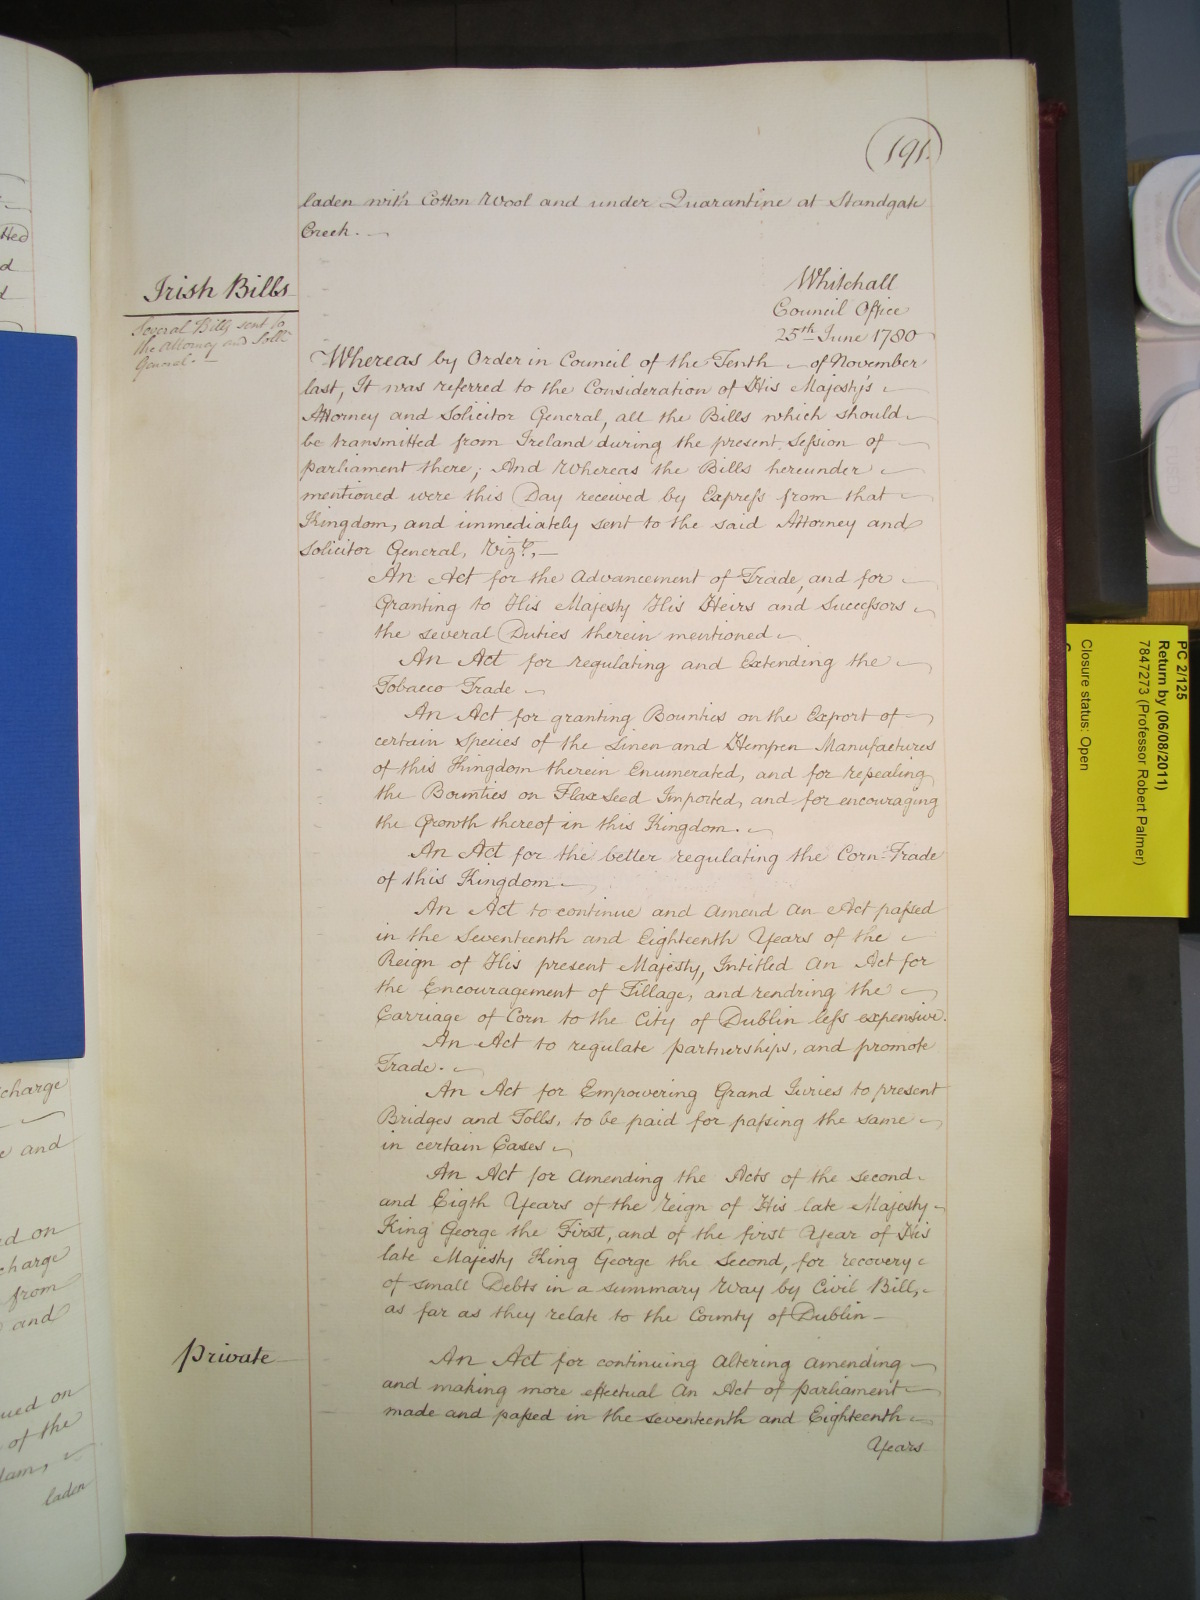 191.
laden with Cotton Wool and under Quarantine at Standgate
Creek.
Irish Bills
Several Bills sent to
the Attorney and Sollr
General.
Whitehall
Council Office
25th June 1780
Whereas by Order in Council of the Tenth of November
last, It was referred to the Consideration of His Majesty's
Attorney and Solicitor General, all the Bills which should
be transmitted from Ireland during the present Session of
parliament there; And Whereas the Bills hereunder
mentioned were this Day received by Express from that
Kingdom, and immediately sent to the said Attorney and
Solicitor General, Vizt.
An Act for the Advancement of Trade, and for
Granting to His Majesty His Heirs and Successors
the several Duties therein mentioned
An Act for regulating and Extending the
Tobacco Trade
An Act for granting Bounties on the Export of
certain Species of the Linen and Hempen Manufactures
of this Kingdom therein Enumerated, and for repealing
the Bounties on Flax Seed Imported, and for encouraging
the Growth thereof in this Kingdom.
An Act for the better regulating the Corn-Trade
of this Kingdom
An Act to continue and Amend An Act passed
in the Seventeenth and Eighteenth Years of the
Reign of His present Majesty, Intitled An Act for
the Encouragement of Tillage, and rendring the
Carriage of Corn to the City of Dublin less expensive.
An Act to regulate partnerships, and promote
Trade.
An Act for Empowering Grand Juries to present
Bridges and Tolls, to be paid for passing the same
in certain Cases
An Act for Amending the Acts of the second
and Eigth Years of the reign of His late Majesty
King George the First, and of the first Year of His
late Majesty King George the Second, for recovery
of small Debts in a summary Way by Civil Bill,
as far as they relate to the County of Dublin
private
An Act for continuing Altering Amending
and making more effectual An Act of parliament
made and passed in the seventeenth and Eighteenth
Years
charge
and
on
charge
from
and
ued on
of the
laden
PC 2/125
Return by (06/08/2011)
7847273 (Professor Robert Palmer)
Closure status: Open